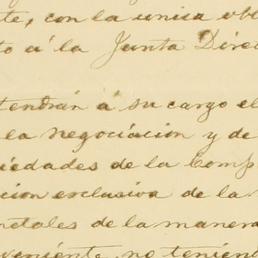 te, con la unica obl
to á la Junta Direc
tendrán á su cargo el
la negociación y de
iedades de la Comp
cion exclusiva de la
ntales de la manera
veniente, no teniend